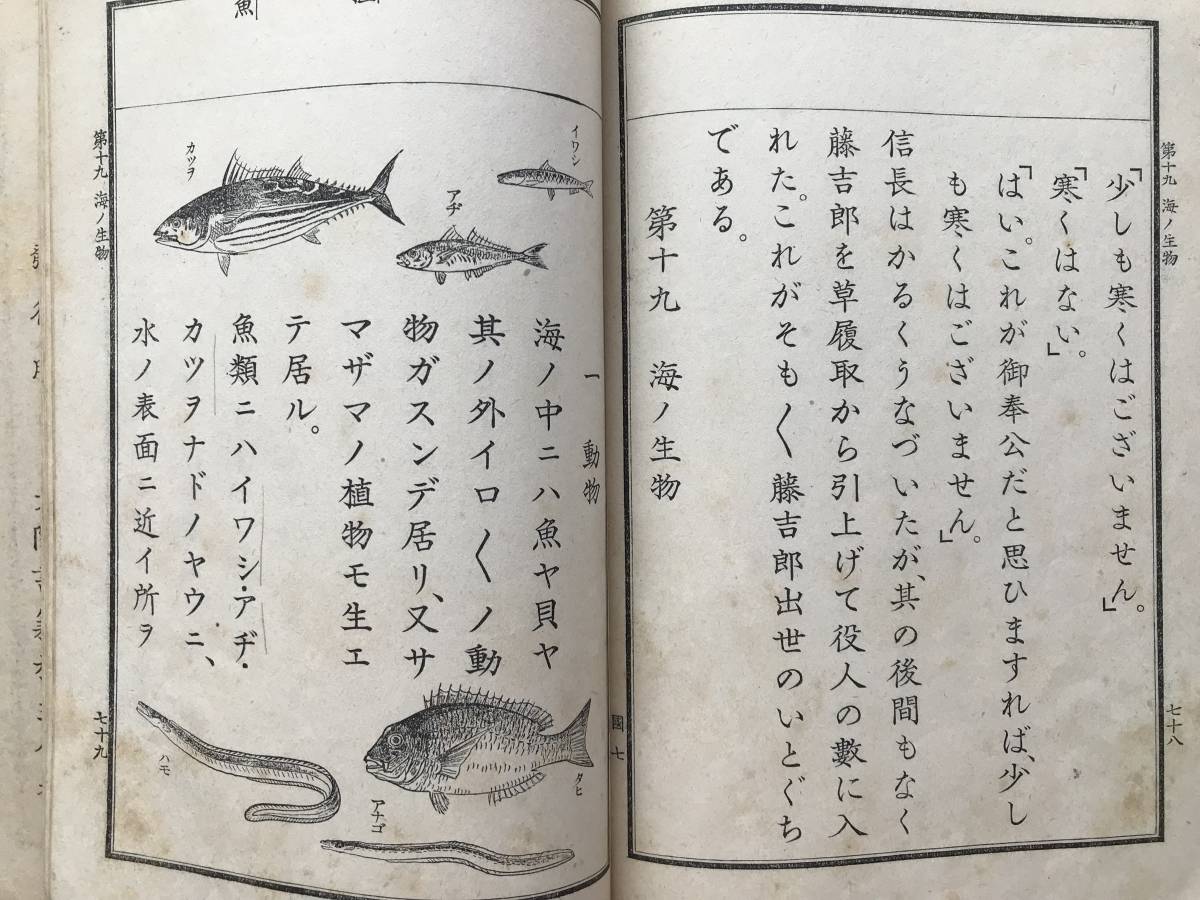 第十九 海ノ生物
七十八
「少しも寒くはございません。」
「寒くはない。」
「はい。これが御奉公だと思ひますれば、少し
も寒くはございません。」
信長はかるくうなづいたが、其の後間もなく
藤吉郎を草履取から引上げて役人の數に入
れた。これがそも〳〵藤吉郎出世のいとぐち
である。
第十九 海ノ生物
國七
一 動物
海ノ中ニハ魚ヤ貝ヤ
其ノ外イロ〳〵ノ動
物ガスンデ居リ、又サ
マザマノ植物モ生エ
テ居ル。
魚類ニハイワシ・アヂ・
カツヲナドノヤウニ、
水ノ表面ニ近イ所ヲ
イワシ
アヂ
カツヲ
タヒ
アナゴ
ハモ
第十九 海ノ生物
七十九
魚